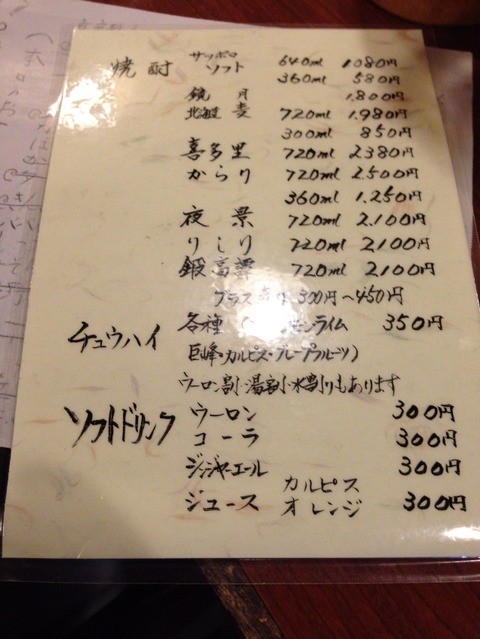 焼酎 サッポロソフト 640ml 1080円
360ml 580円
鏡月 1,800円
北海道 麦 720ml 1,980円
300ml 850円
喜多里 720ml 2380円
からり 720ml 2,500円
360ml 1,250円
夜景 720ml 2,100円
りしり 720ml 2100円
鍛高譚 720ml 2100円
グラス 300円〜450円
チュウハイ 各種 ライム 350円
巨峰・カルピス・グレープフルーツ)
ウーロン割り 湯割り 水割りもあります
ソフトドリンク ウーロン 300円
コーラ 300円
ジンジャーエール 300円
ジュース カルピス オレンジ 300円